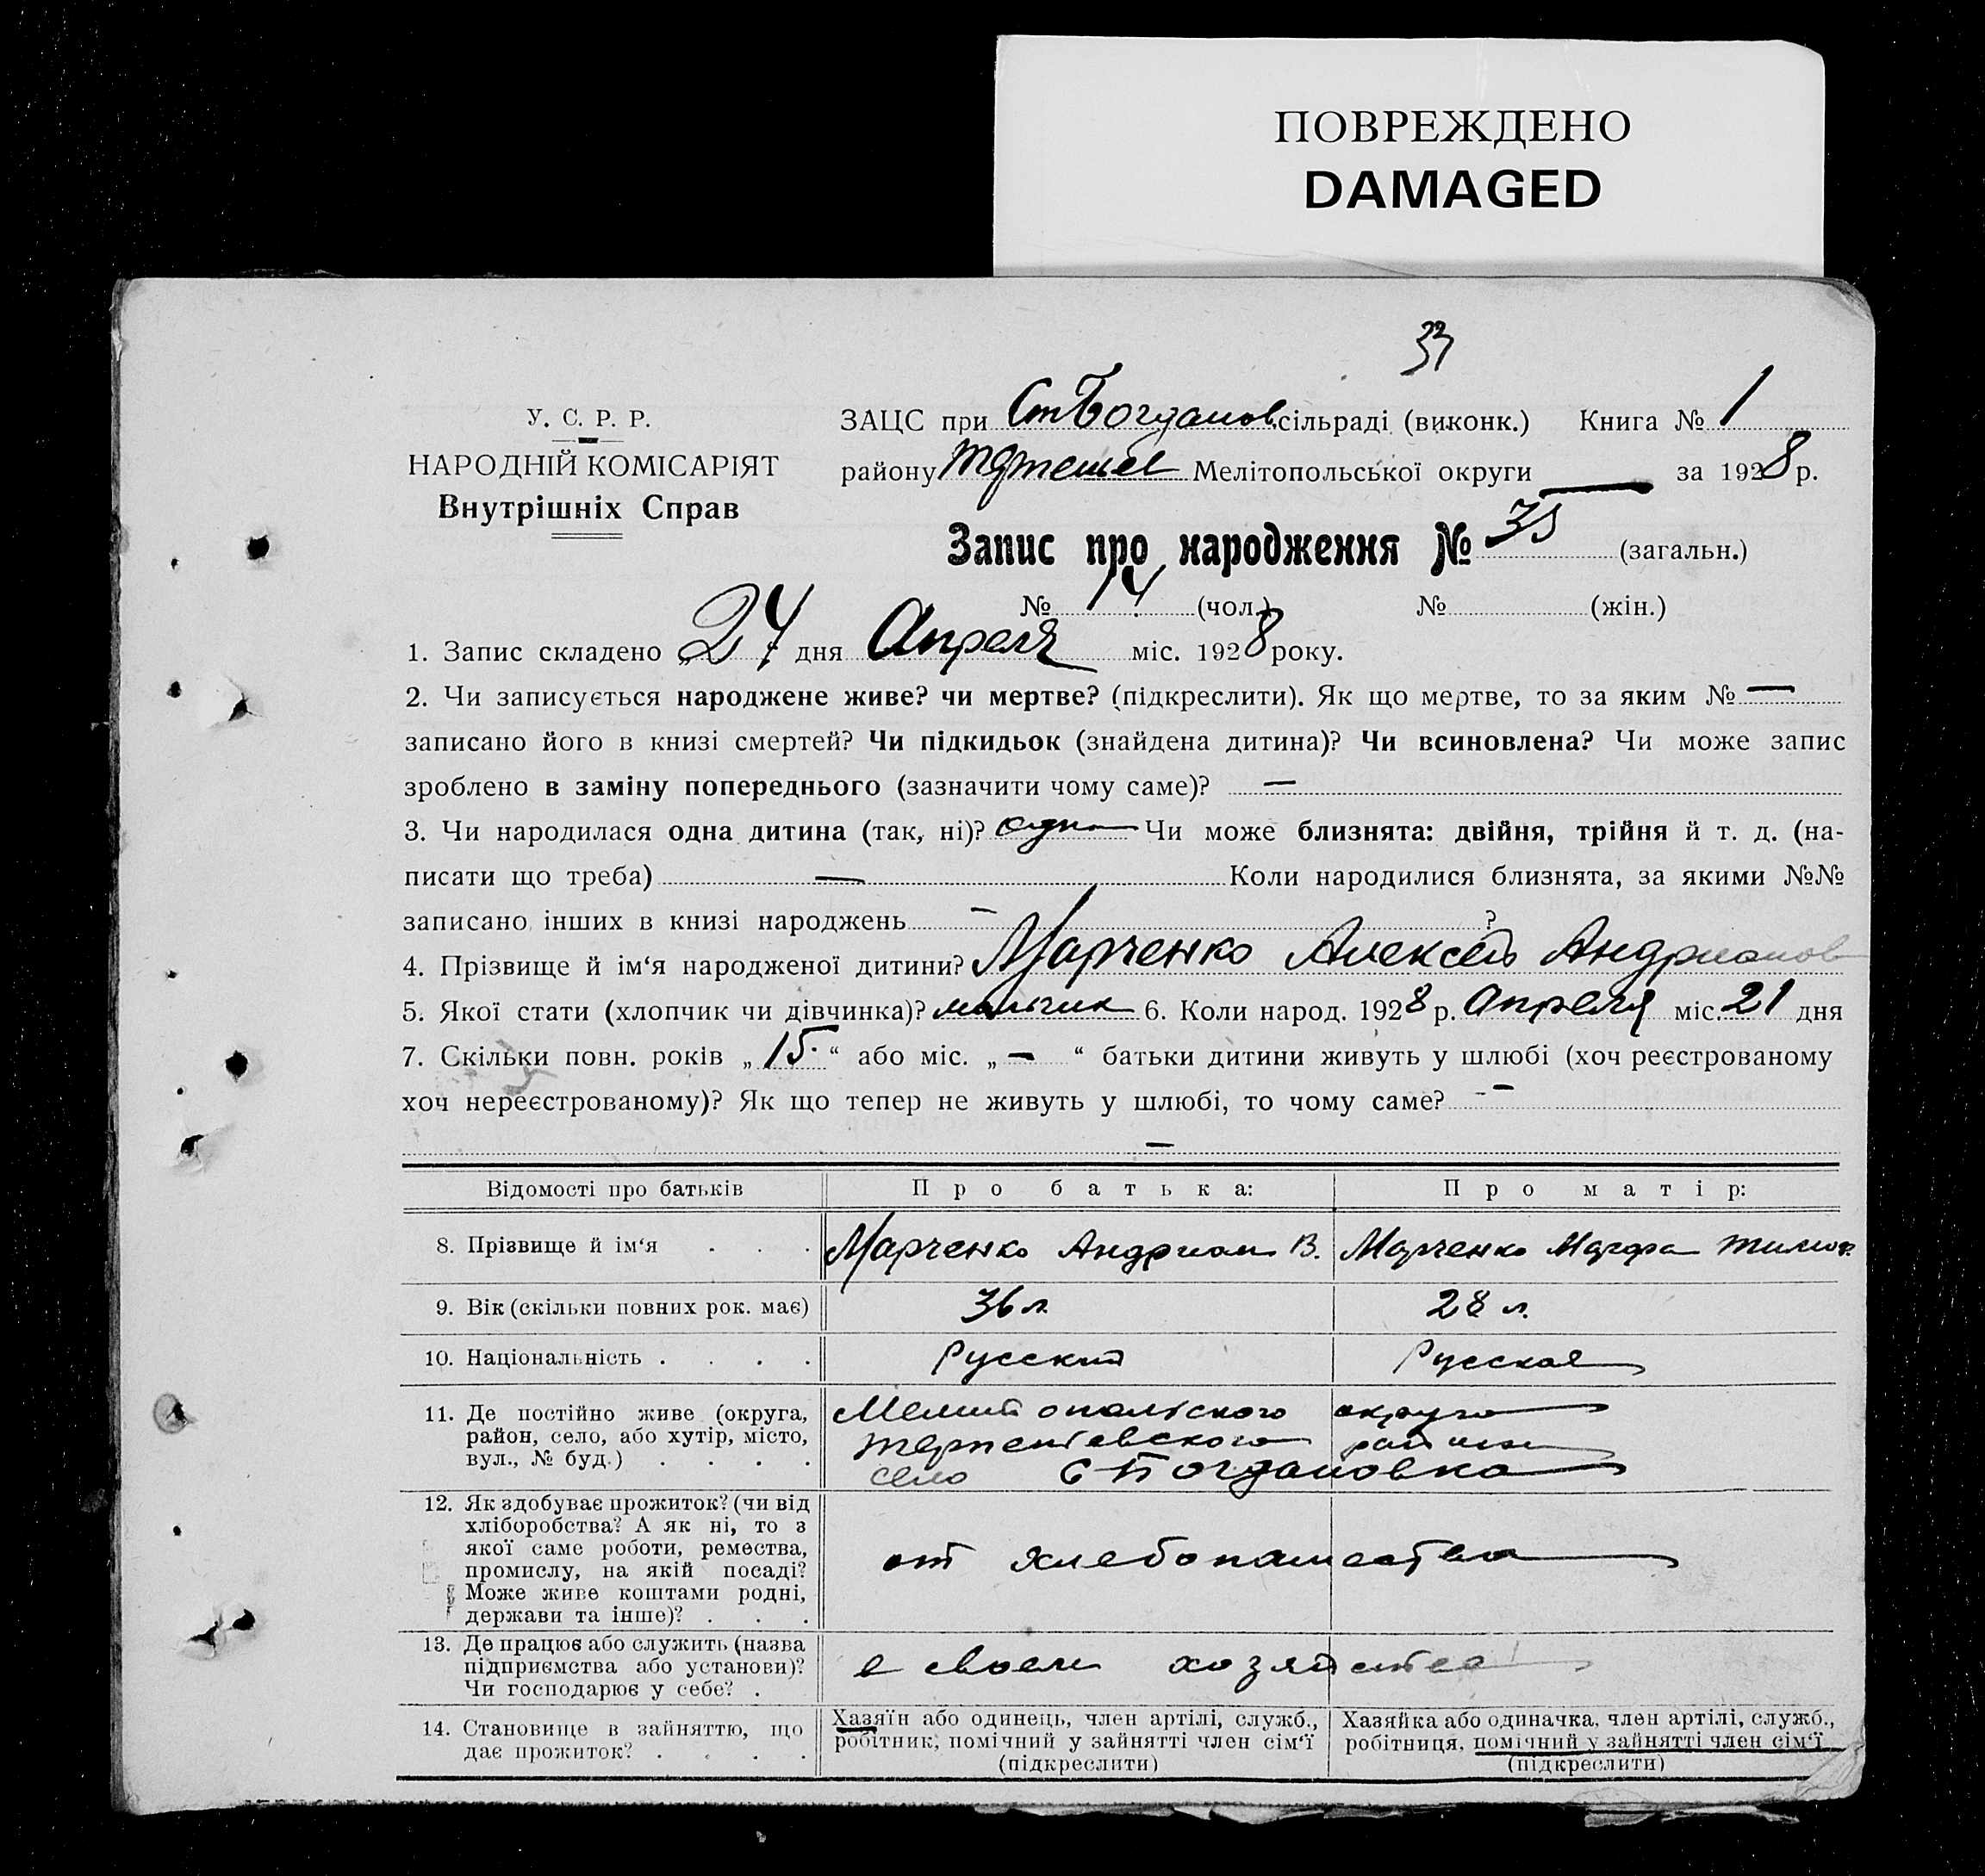 ПОВРЕЖДЕНО
DAMAGED
33
У. С. Р. Р.
НАРОДНІЙ КОМІСАРІЯТ
Внутрішніх Справ
ЗАЦС при СтБогданов. сільраді (виконк.) Книга № 1
району Мелітопольської округи — за 1928 р.
Запис про народження № 35 (загальн.)
№ 14 (чол.) № (жін.)
1. Запис складено „24 дня Апреля міс. 1928 року.
2. Чи записується народжене живе? чи мертве? (підкреслити). Як що мертве, то за яким № —
записано його в книзі смертей? Чи підкидьок (знайдена дитина)? Чи всиновлена? Чи може запис
зроблено в заміну попереднього (зазначити чому саме)? —
3. Чи народилася одна дитина (так, ні)? одна Чи може близнята: двійня, трійня й т. д. (на-
писати що треба) — Коли народилися близнята, за якими №№
записано інших в книзі народжень — ?
4. Прізвище й ім‘я народженої дитини? Марченко Алексей Андрианов
5. Якої стати (хлопчик чи дівчинка)? мальчик 6. Коли народ. 1928 р. Апреля міс. 21 дня
7. Скільки повн. років „15.“ або міс. „—“ батьки дитини живуть у шлюбі (хоч реєстрованому
хоч нереєстрованому)? Як що тепер не живуть у шлюбі, то чому саме? —
—
Відомості про батьків Про батька: Про матір:
8. Прізвище й ім‘я . . . Марченко Андриан В. Марченко Марфа Тимоф.
9. Вік (скільки повних рок. має) 36 л. 28 л.
10. Національність . . . . Русский Русская
11. Де постійно живе (округа,
район, село, або хутір, місто,
вул., № буд.) . . . .
Мелитопольского округа
Терпеньевского района
село С Богдановка
12. Як здобуває прожиток? (чи від
хліборобства? А як ні, то з
якої саме роботи, ремества,
промислу, на якій посаді?
Може живе коштами родні,
держави та інше)? . . .
от хлебопашества
13. Де працює або служить (назва
підприємства або установи)?
Чи господарює у себе? .
в своем хозяйстве
14. Становище в зайняттю, що
дає прожиток? . . . .
Хазяїн або одинець, член артілі, служб.,
робітник, помічний у зайнятті член сім‘ї
(підкреслити)
Хазяйка або одиначка, член артілі, служб.,
робітниця, помічний у зайнятті член сім‘ї
(підкреслити)